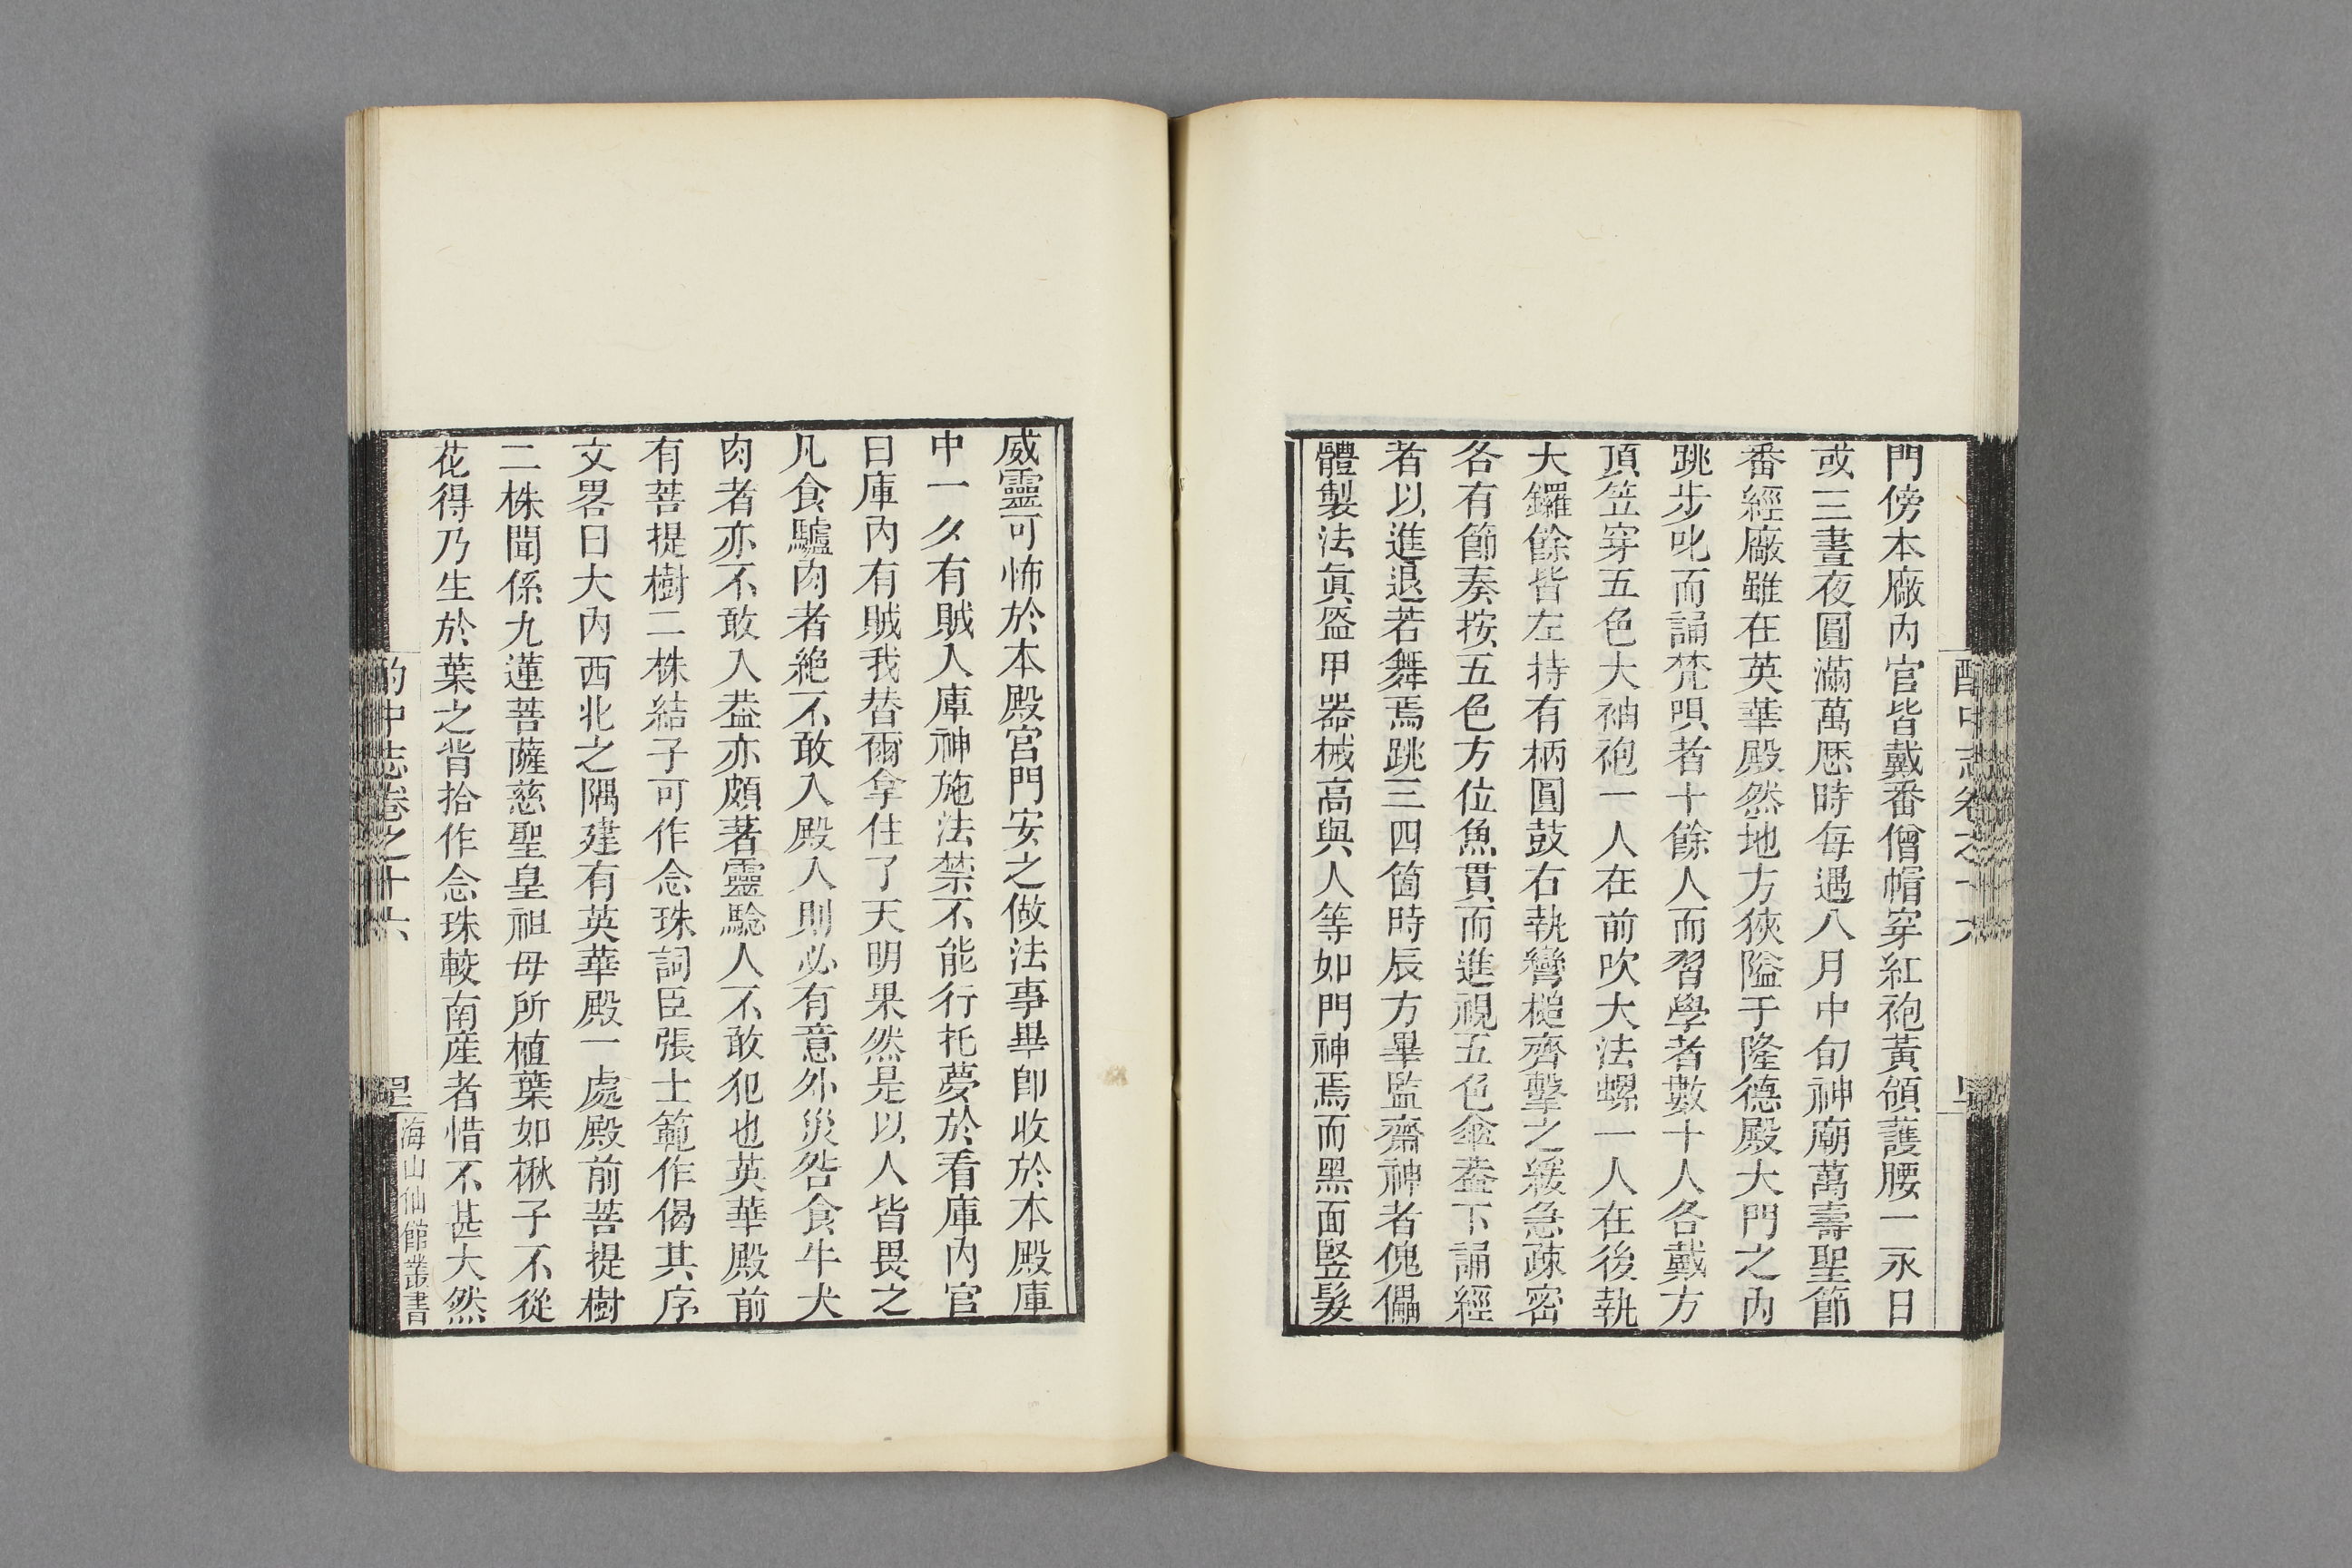 門傍本廠內官皆戴番僧帽穿紅袍黃領護腰一永日
或三晝夜圓滿萬厯時每遇八月中旬神廟萬壽聖節
番經廠雖在英華殿然地方狹隘于隆德殿大門之內
跳步叱而誦梵唄者十餘人而習學者數十人各戴方
頂笠穿五色大袖袍一人在前吹大法螺一人在後執
大鑼餘皆左持有柄圓鼓右執彎槌齊擊之緩急疎密
各有節奏按五色方位魚貫而進視五色傘葢下誦經
者以進退若舞焉跳三四箇時辰方畢監齋神者傀儡
體製法眞盔甲器械高與人等如門神焉而黑面豎髮
威靈可怖於本殿宮門安之做法事畢卽收於本殿庫
中一夕有賊入庫神施法禁不能行托夢於看庫內官
曰庫內有賊我替爾拿住了天明果然是以人皆畏之
凡食驢肉者絶不敢入殿入則必有意外災咎食牛犬
肉者亦不敢入葢亦頗著靈驗人不敢犯也英華殿前
有菩提樹二株結子可作念珠詞臣張士範作偈其序
文畧曰大內西北之隅建有英華殿一處殿前菩提樹
二株聞係九蓮菩薩慈聖皇祖母所植葉如楸子不從
花得乃生於葉之背拾作念珠較南産者惜不甚大然
酌中志卷之十六
海山仙館叢書